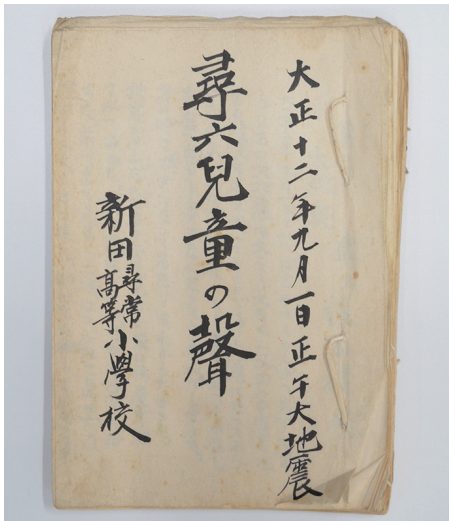 大正十二年九月一日正午大地震
尋六兒童の聲
新田尋常高等小學校